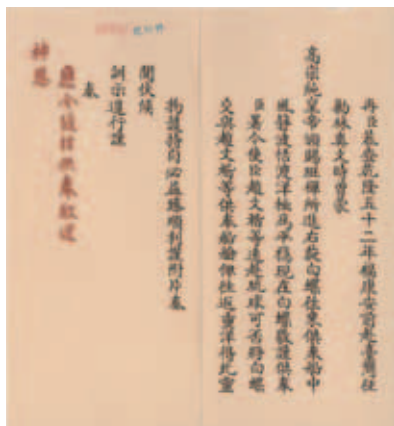 再臣恭查乾隆五十二年福康安前赴臺灣征
勦林爽文時曾蒙
高宗純皇帝頒賜班禪所進右旋白螺往來供奉船中
風靜波恬渡洋極為平穩現在白螺敬謹供奉
臣署今使臣趙文楷等遠赴琉球可否將白螺
交與趙文楷等供奉船艙俾往返重洋得此靈
物護持自必益臻順利謹附片奏
聞伏候
訓示遵行謹
奏
應令伊等供奉敬迓
神恩